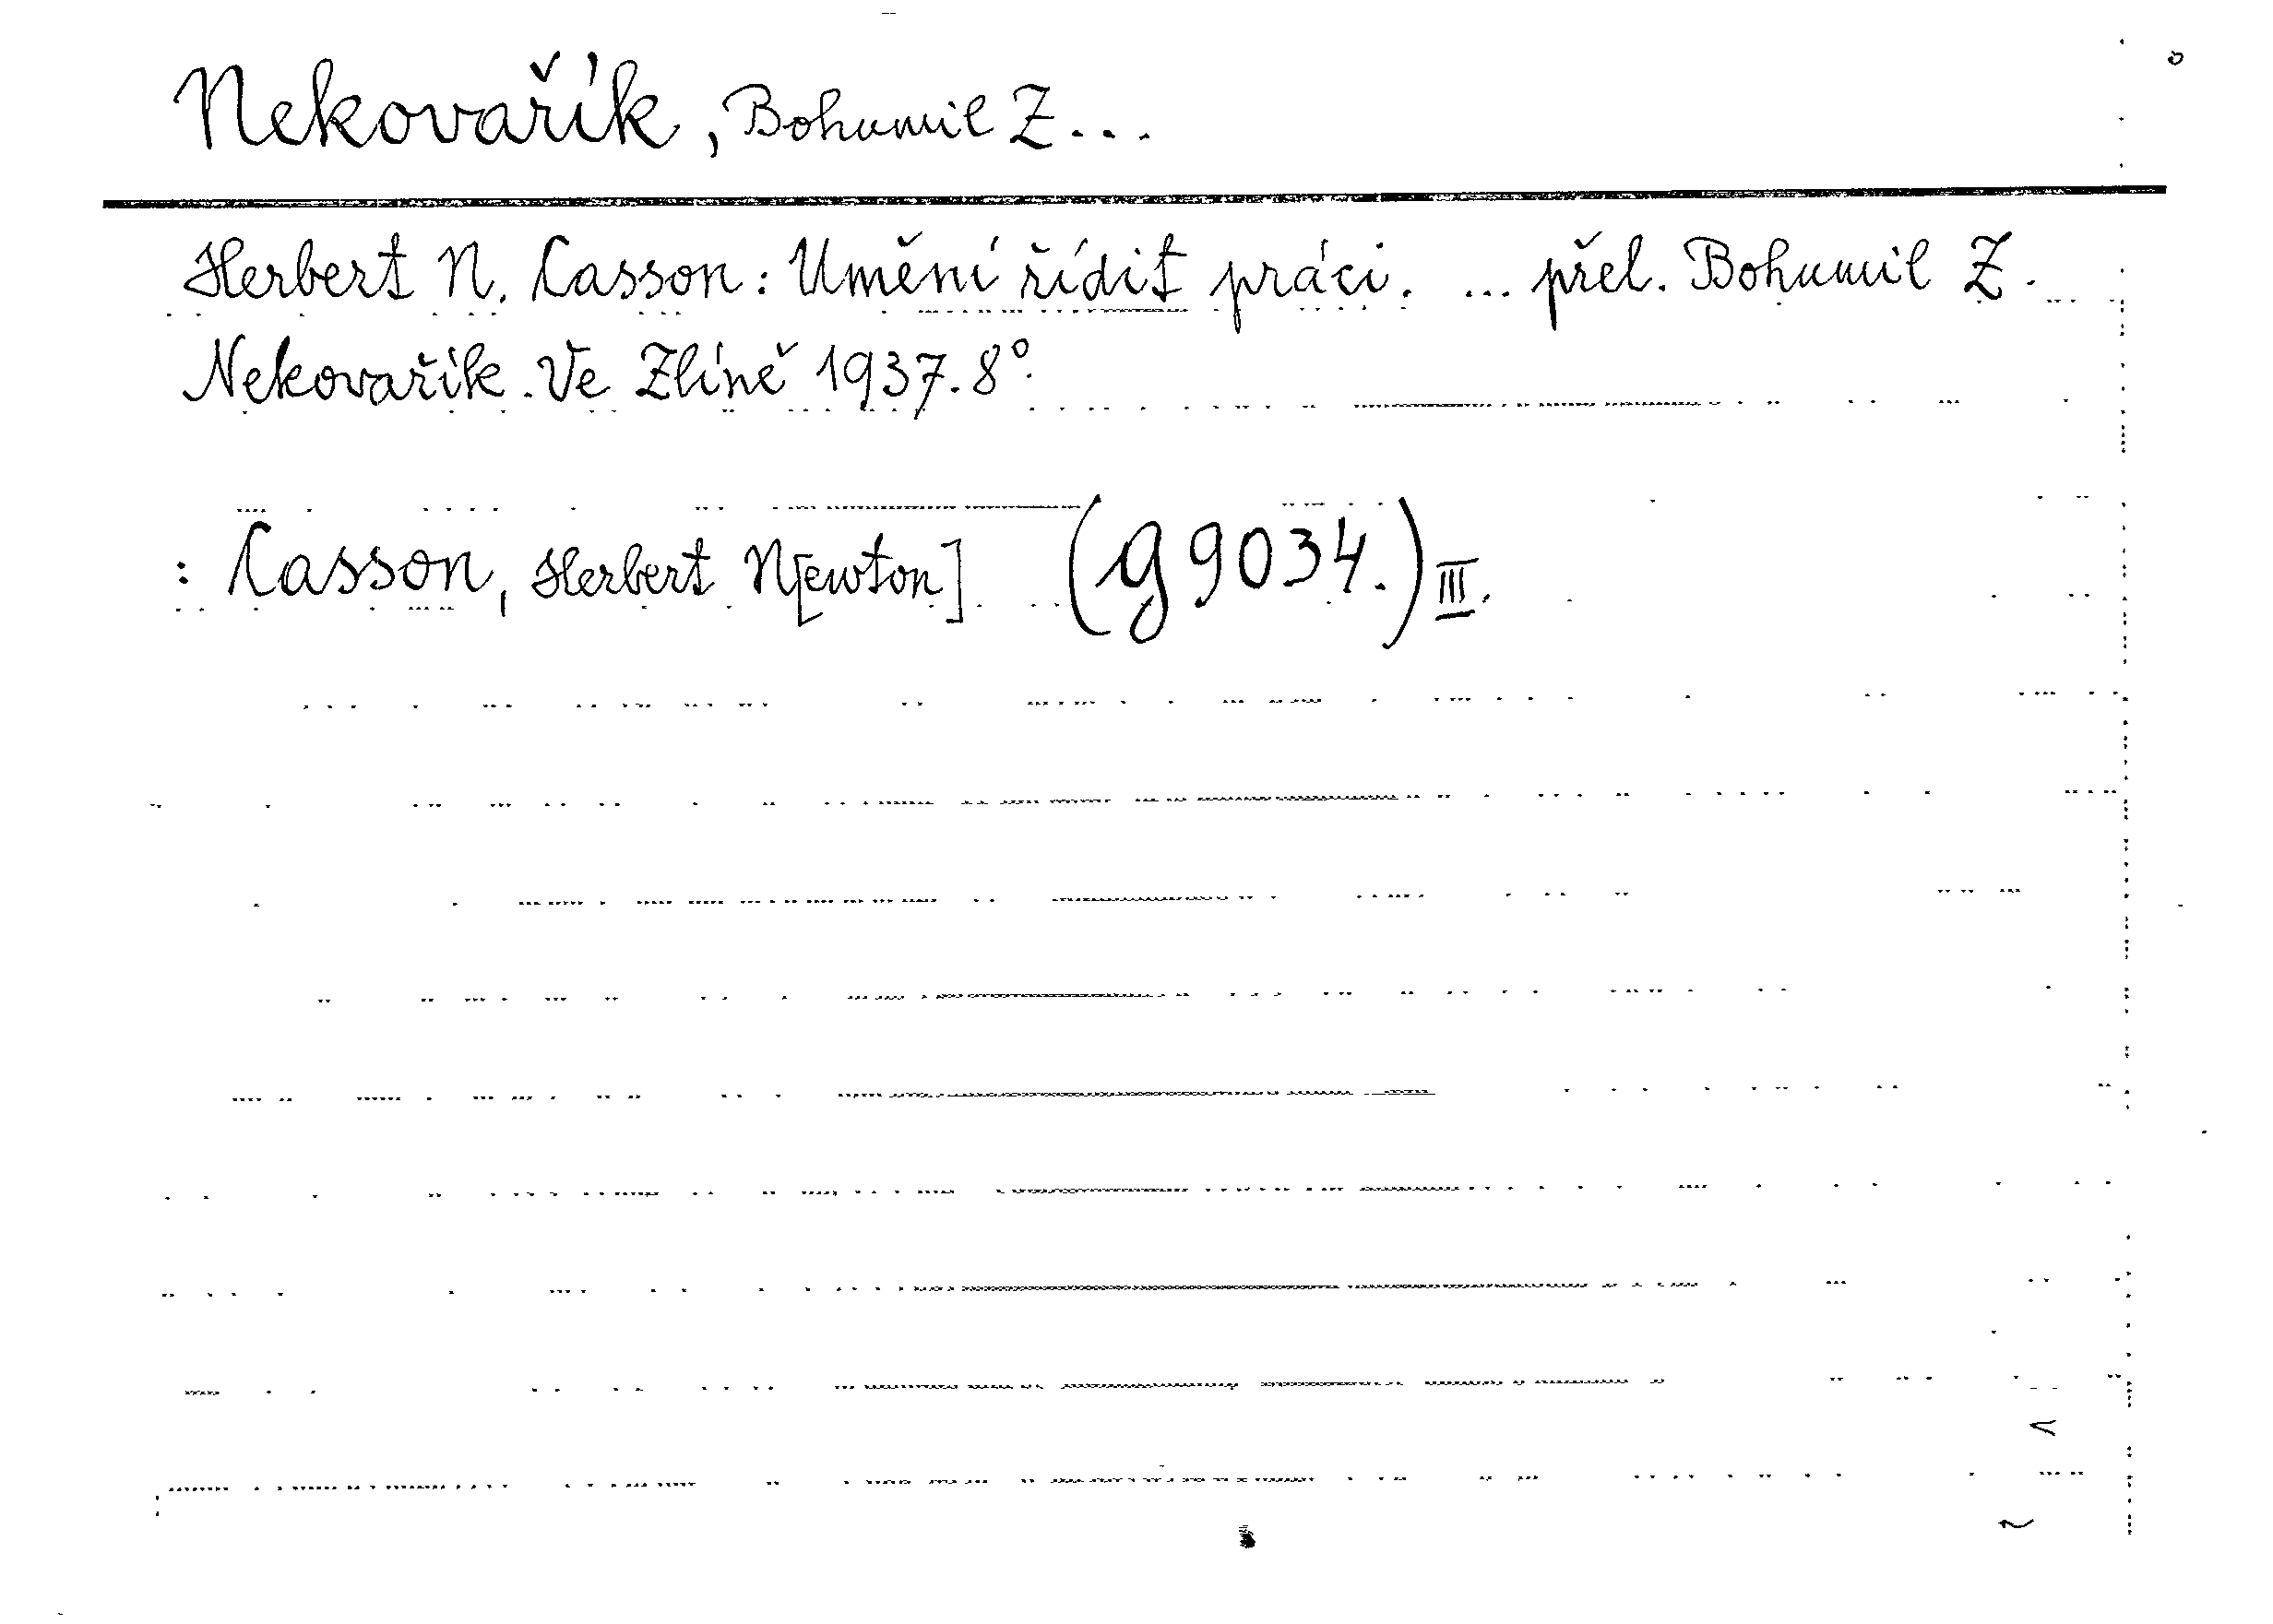 Nekovařík, Bohumil Z...
Herbert N. Casson: Umění řídit práci. ... přel. Bohumil Z.
Nekovařík. Ve Zlíně 1937. 8°.
: Casson, Herbert N[ewton] (g 9034.) III.